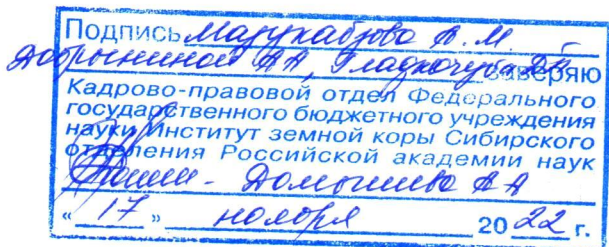 Подпись Мазукабзова А.М.
Добрыниной АА, Гладкочуба ДП заверяю
Кадрово-правовой отдел Федерального
государственного бюджетного учреждения
науки Институт земной коры Сибирского
отделения Российской академии наук
Домышева АА
« 17 » ноября 2022 г.